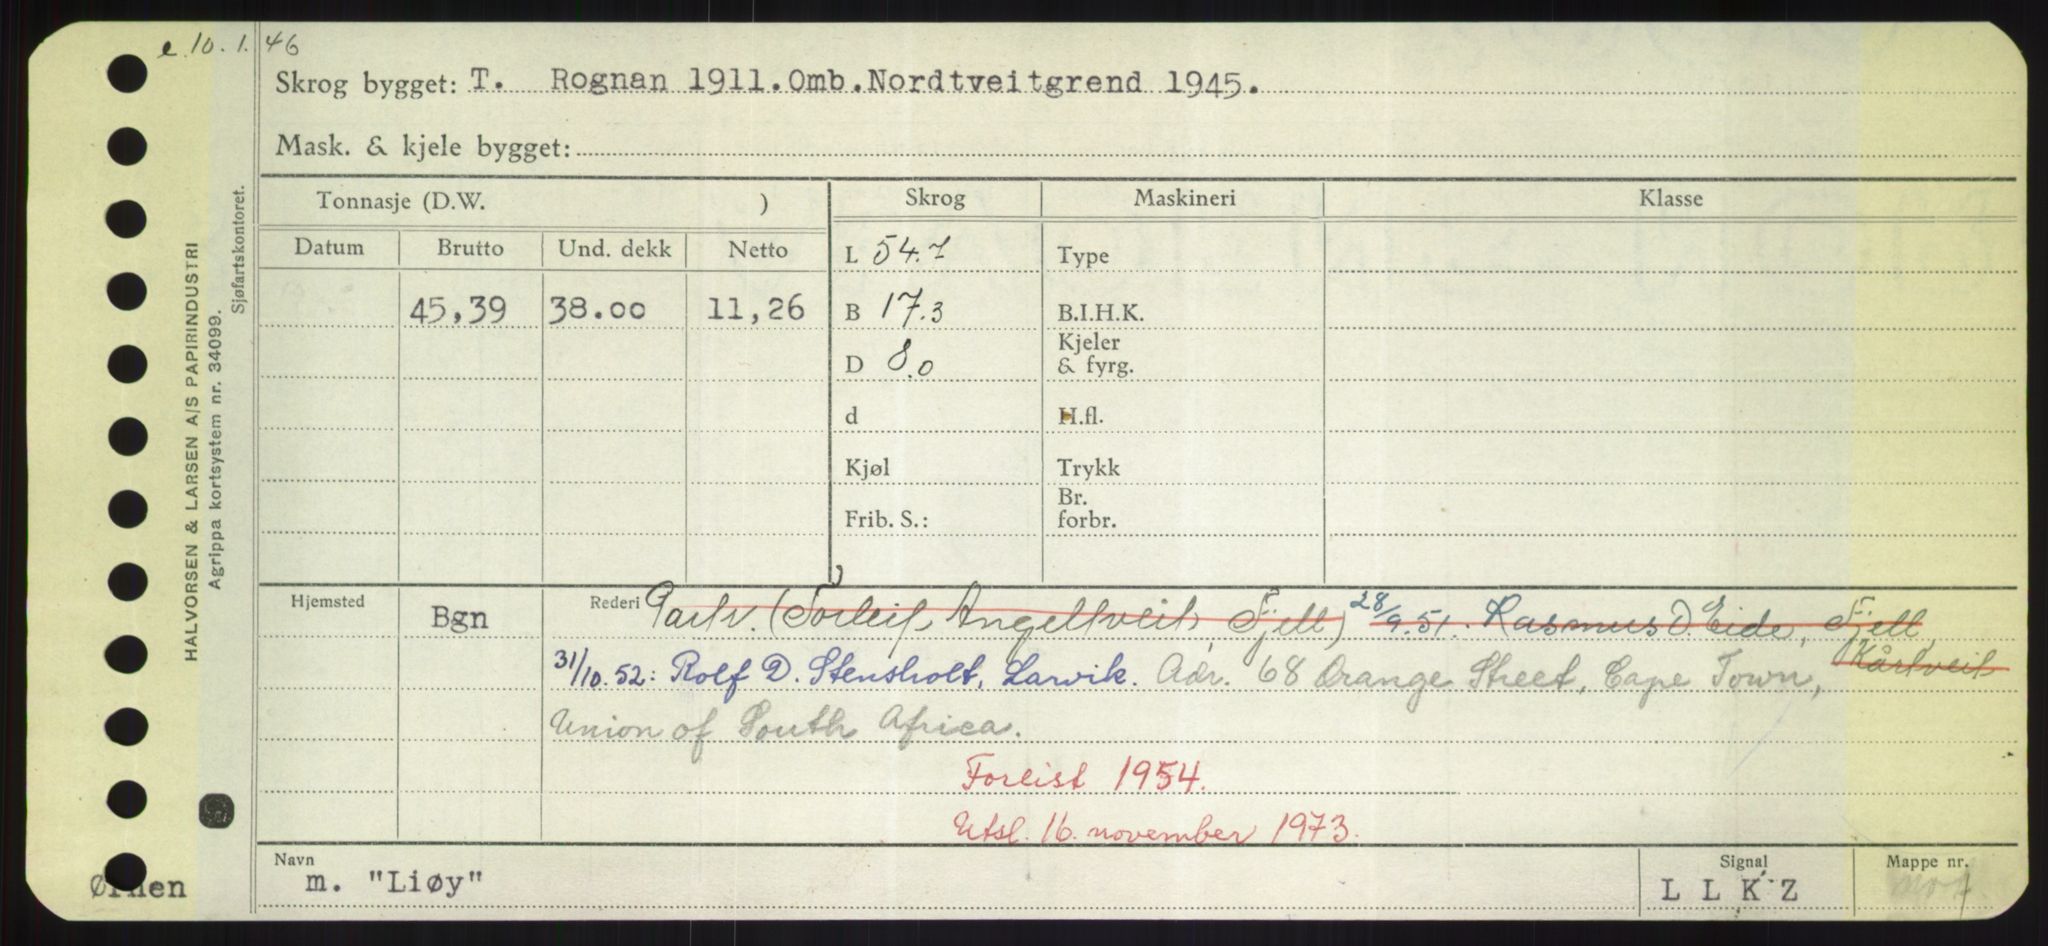 e. 10.1.46
Skrog bygget: T. Rognan 1911. Omb. Nordtveitgrend 1945.
Mask. & kjele bygget:
HALVORSEN & LARSEN A/S PAPIRINDUSTRI
Agrippa kortsystem nr. 34099.
Sjøfartskontoret.
Tonnasje (D.W. ) Skrog Maskineri Klasse
Datum Brutto Und. dekk Netto
L 54.7 Type
45,39 38.00 11,26 B 17.3 B.I.H.K.
D 8.0 Kjeler & fyrg.
d H.fl.
Kjøl Trykk
Frib. S.: Br. forbr.
Hjemsted Bgn Rederi Partr. (Torleif Angeltveit, Fjell) 28/9.51. Rasmus D. Eide, Fjell,
Kårtveit
31/10.52: Rolf D. Stensholt, Larvik. Adr. 68 Orange Street, Cape Town,
Union of South Africa.
Forlist 1954.
Utsl. 16. november 1973.
Navn Signal Mappe nr.
Ørnen m. "Liøy" L L K Z